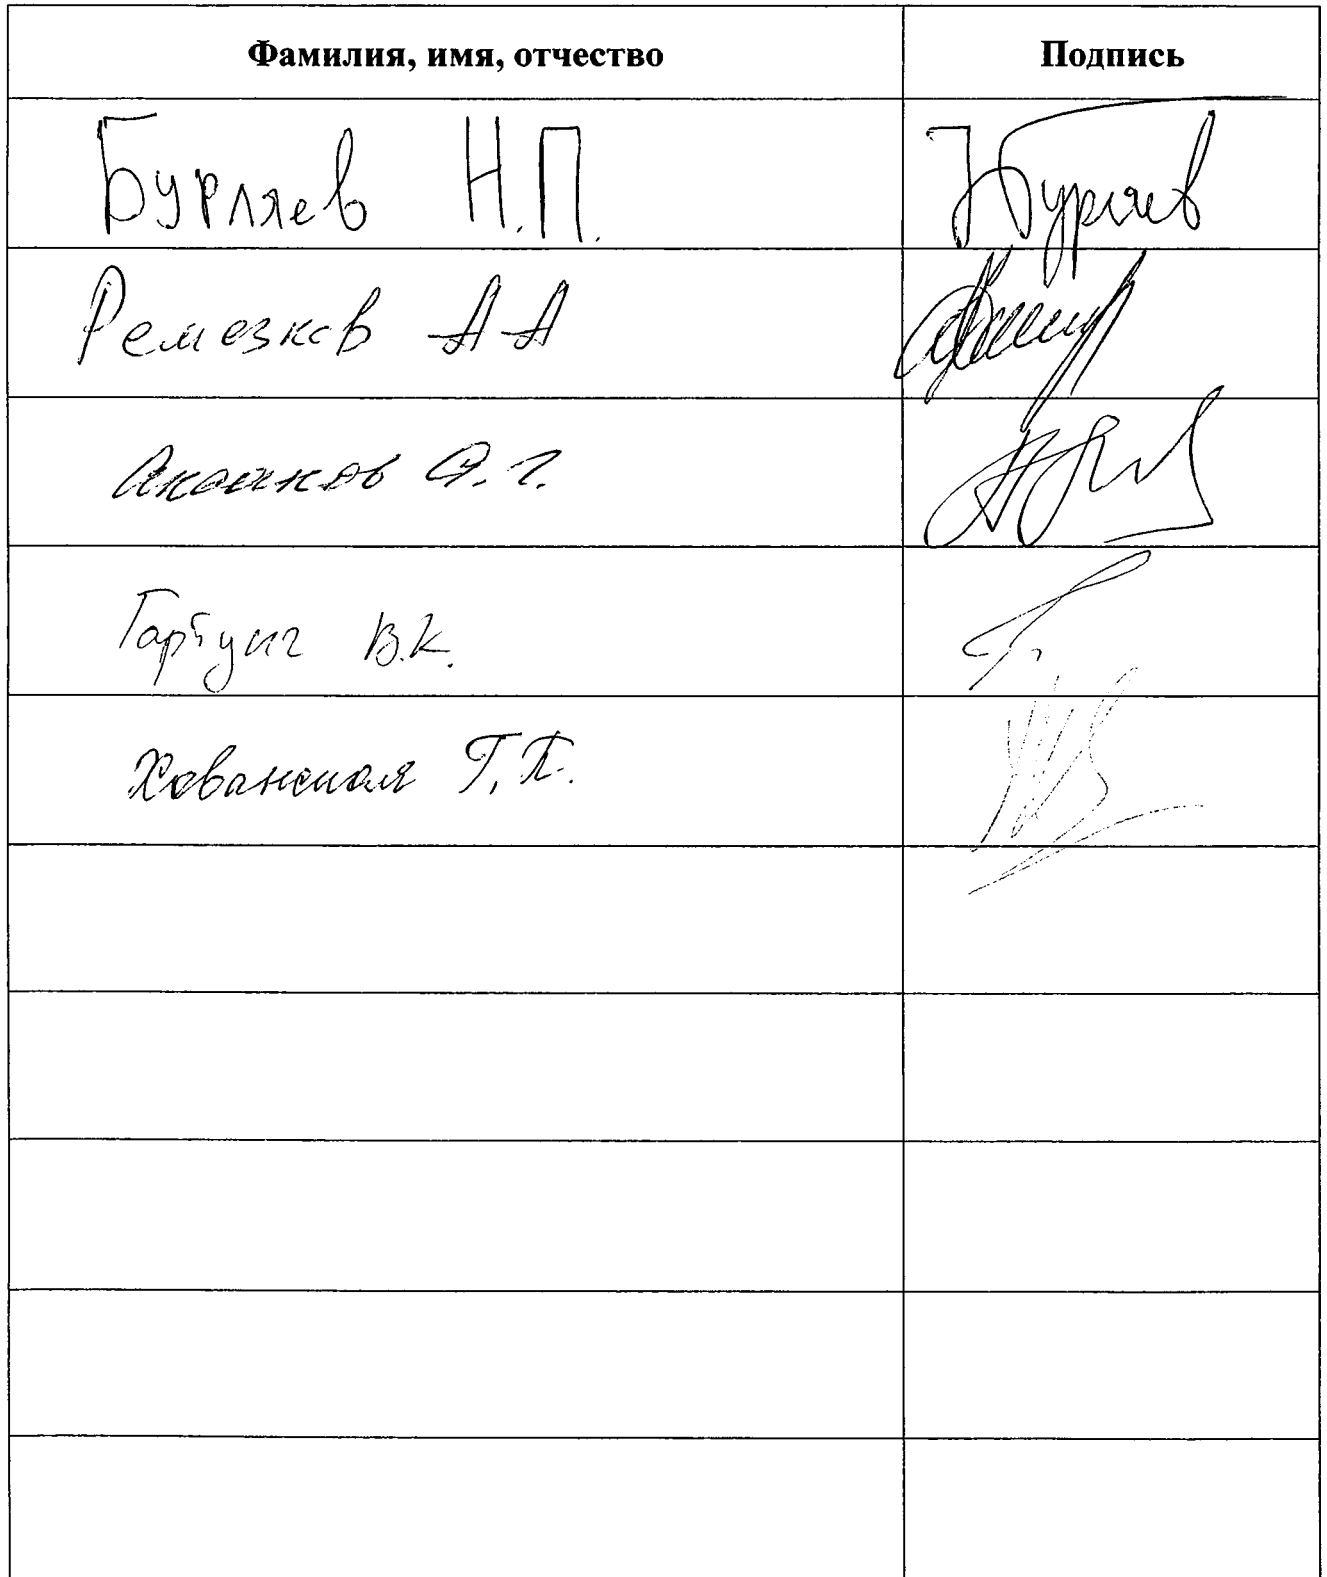 Фамилия, имя, отчество Подпись
Бурляев Н.П. НБурляев
Ремезков А А
Аксаков А.Г.
Гартунг В.К.
Хованская Г.П.